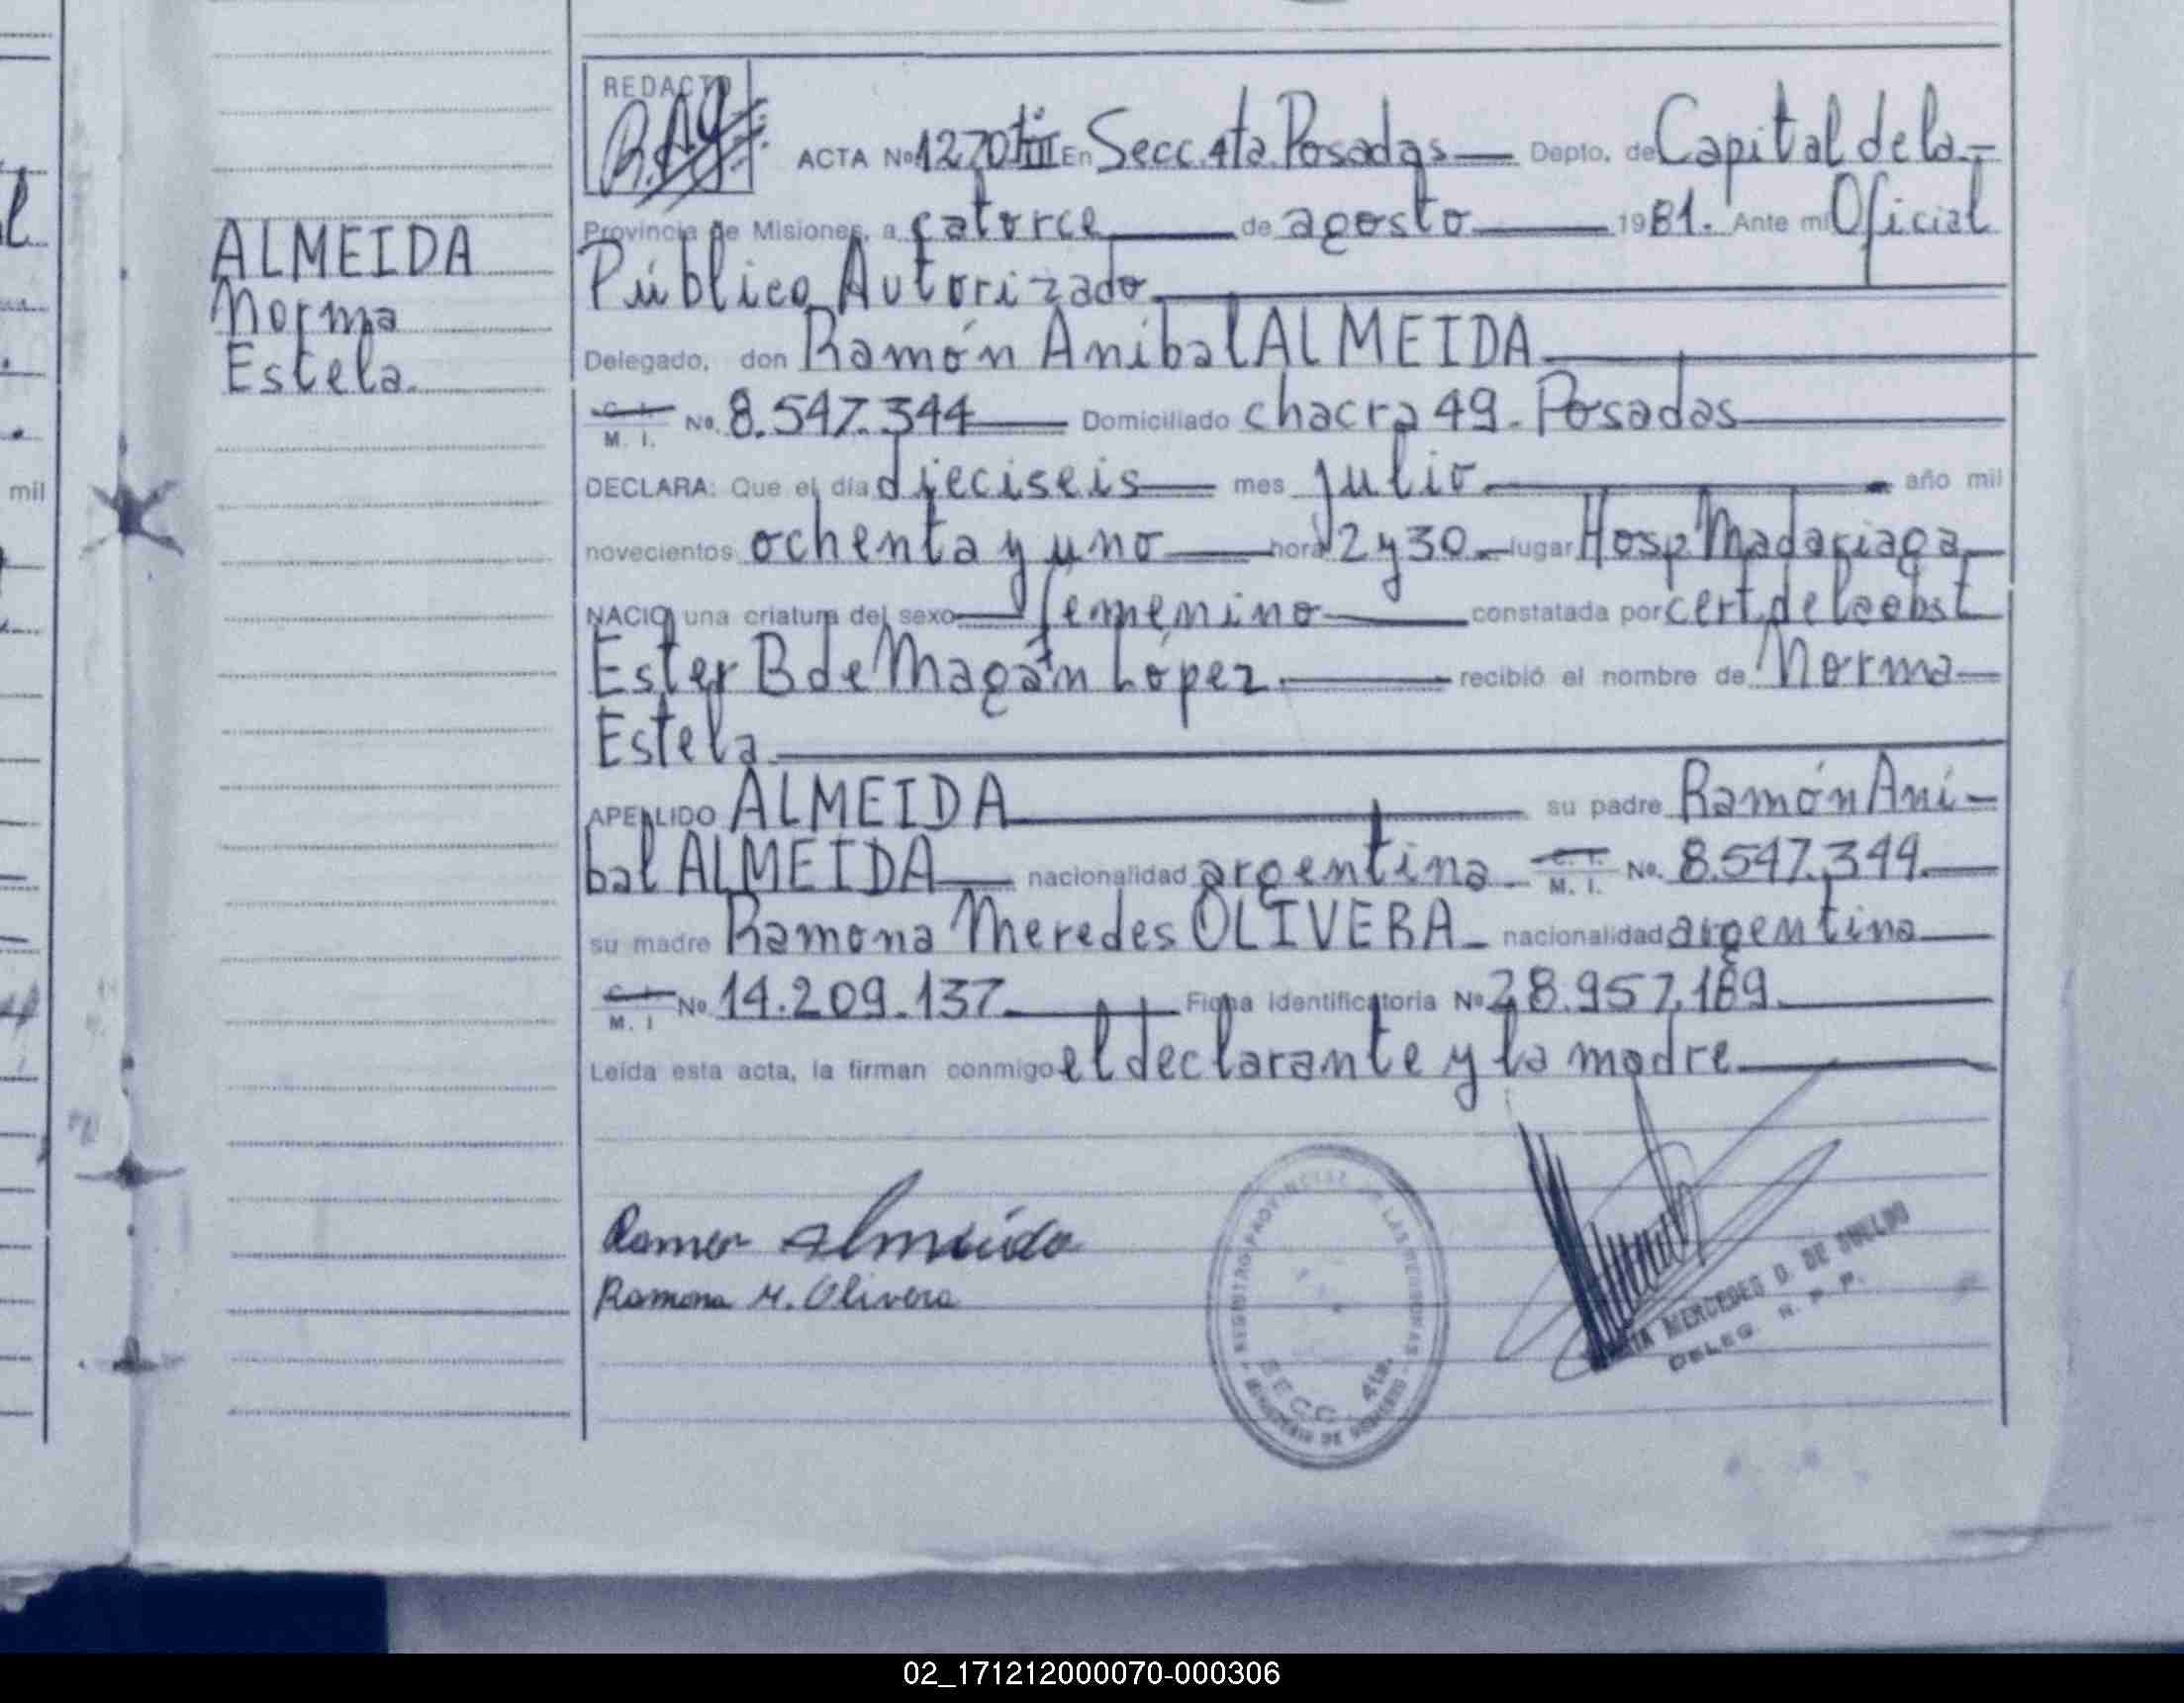 ALMEIDA
Norma
Estela.
mil
REDACTO
ACTA Nº 1270 tº III En Secc. 4ta. Posadas Depto. de Capital de la
Provincia de Misiones, a catorce de agosto 1981. Ante mi Oficial
Público Autorizado
Delegado, don Ramón Anibal ALMEIDA
C. I. M. I. No. 8.547.344 Domiciliado chacra 49. Posadas
DECLARA: Que el día dieciseis mes julio año mil
novecientos ochenta y uno hora 2 y 30 lugar Hosp Madariaga
NACIO una criatura del sexo femenino constatada por cert. de la obst
Ester B de Magán López recibió el nombre de Norma
Estela
APELLIDO ALMEIDA su padre Ramón Ani-
bal ALMEIDA nacionalidad argentina C. I. M. I. No. 8.547.344
su madre Ramona Meredes OLIVERA nacionalidad argentina
C. I. M. I No 14.209.137 Ficha identificatoria Nº 28.957.189
Leída esta acta, la firman conmigo el declarante y la madre
Ramon Almeida
Ramona M. Olivera
REGISTRO PROVINCIAL DE LAS PERSONAS
SECC 4ta.
MINISTERIO DE GOBIERNO
MERCEDES D. DE
DELEG. R. P. P.
02_171212000070-000306